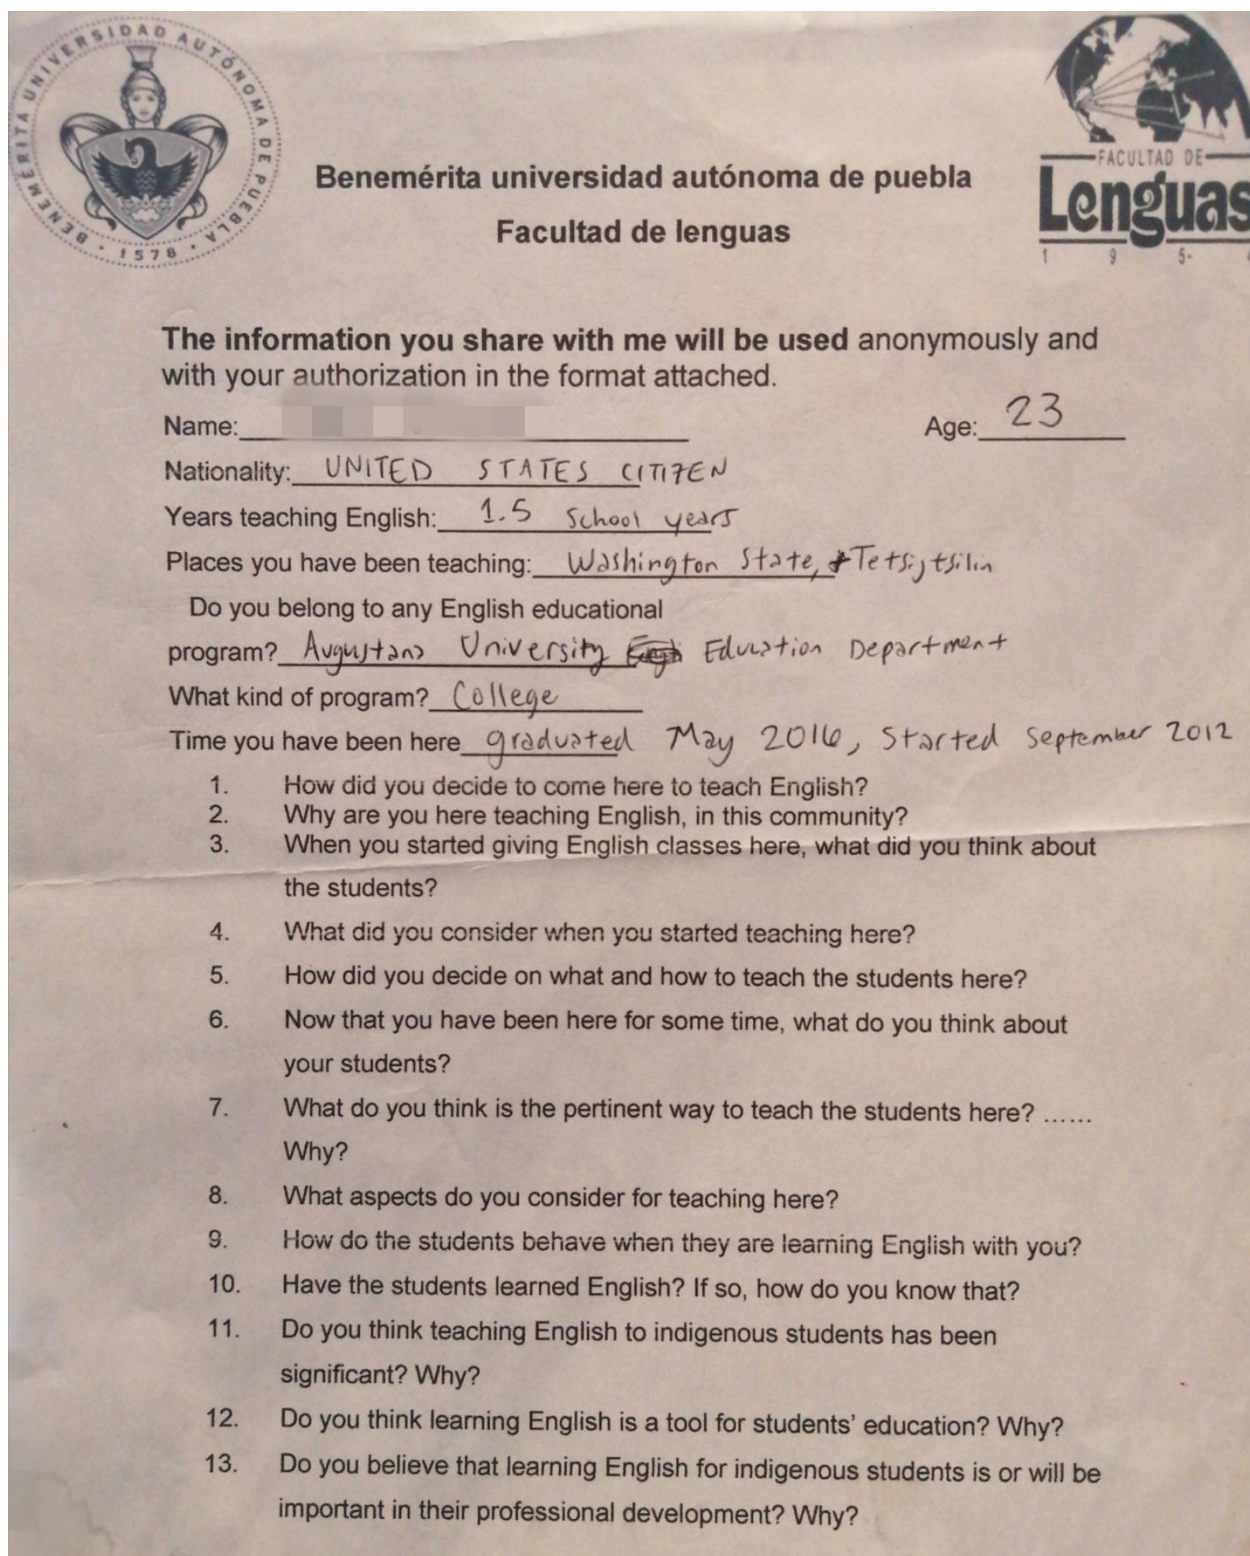 BENEMÉRITA UNIVERSIDAD AUTÓNOMA DE PUEBLA
1578
FACULTAD DE
Lenguas
1 9 5-
Benemérita universidad autónoma de puebla
Facultad de lenguas
The information you share with me will be used anonymously and
with your authorization in the format attached.
Name: Age: 23
Nationality: UNITED STATES CITIZEN
Years teaching English: 1.5 School years
Places you have been teaching: Washington State, + Tetsijtsilin
Do you belong to any English educational
program? Augustana University Education Department
What kind of program? College
Time you have been here graduated May 2016, Started September 2012
1. How did you decide to come here to teach English?
2. Why are you here teaching English, in this community?
3. When you started giving English classes here, what did you think about
the students?
4. What did you consider when you started teaching here?
5. How did you decide on what and how to teach the students here?
6. Now that you have been here for some time, what do you think about
your students?
7. What do you think is the pertinent way to teach the students here? ......
Why?
8. What aspects do you consider for teaching here?
9. How do the students behave when they are learning English with you?
10. Have the students learned English? If so, how do you know that?
11. Do you think teaching English to indigenous students has been
significant? Why?
12. Do you think learning English is a tool for students' education? Why?
13. Do you believe that learning English for indigenous students is or will be
important in their professional development? Why?